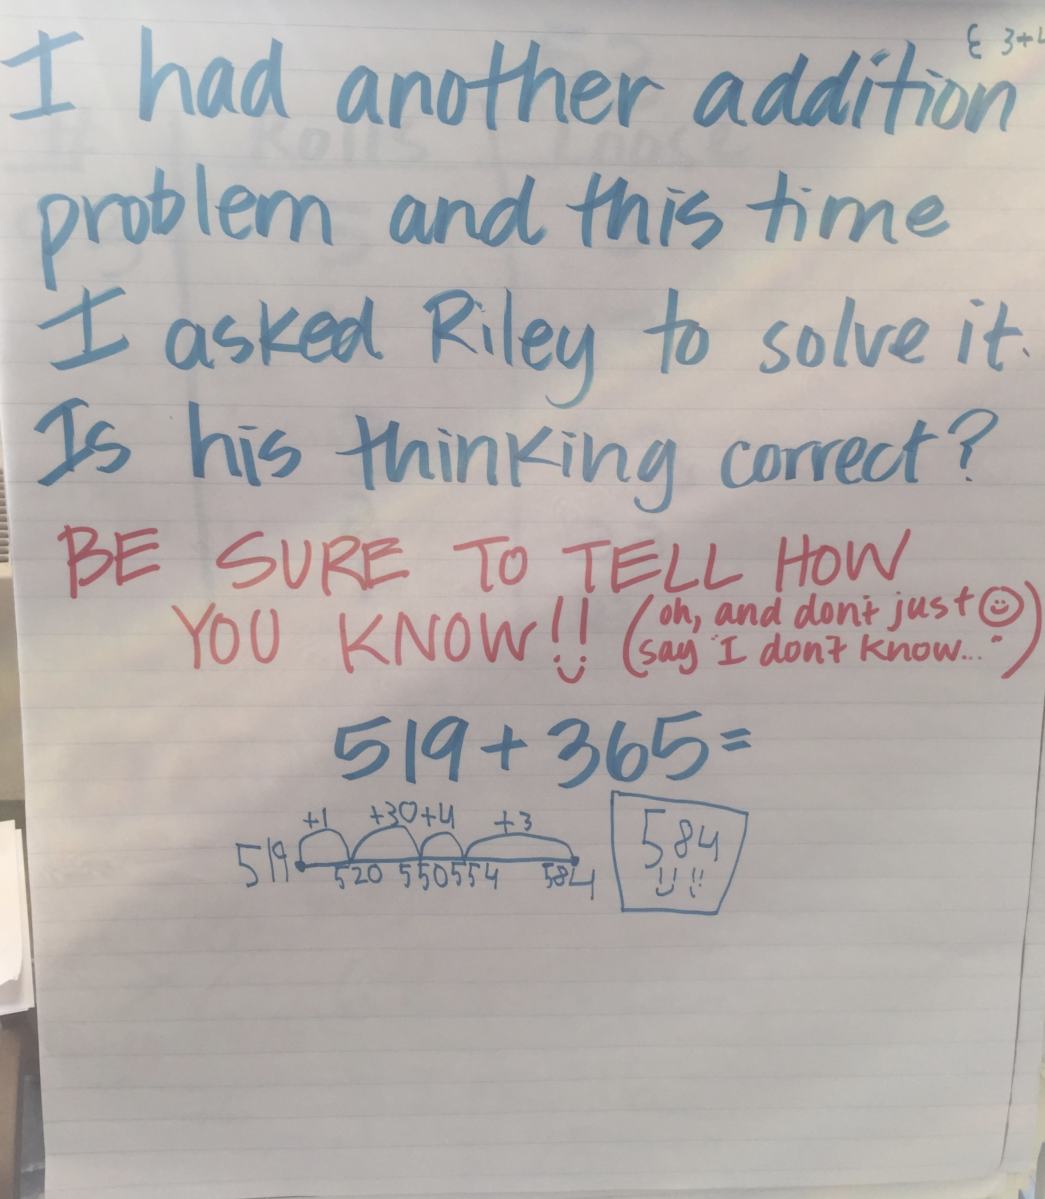 { 3+4
I had another addition
problem and this time
I asked Riley to solve it.
Is his thinking correct?
BE SURE TO TELL HOW
YOU KNOW!!
(oh, and don't just
say "I don't know...")
519+365=
+1 +30 +4 +3
519 520 550 554 584
584